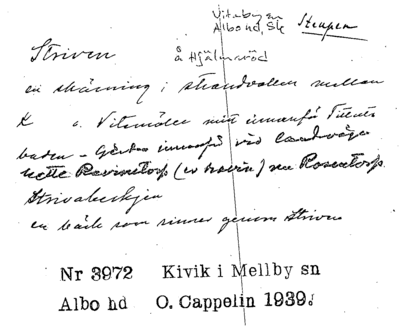 Vitaby sn
Albo hd, Sk Stenpen
Striven å Hjälmaröd
en skärning i strandvallen mellan
K o. Vitemölle mitt innanför Titents
baden – Gården innanför vid landsvägen
hette Ravinetorp (av ravin) nu Rosentorp
Strivabäckjen
en bäck som rinner genom Striven
Nr 3972 Kivik i Mellby sn
Albo hd O. Cappelin 1939.